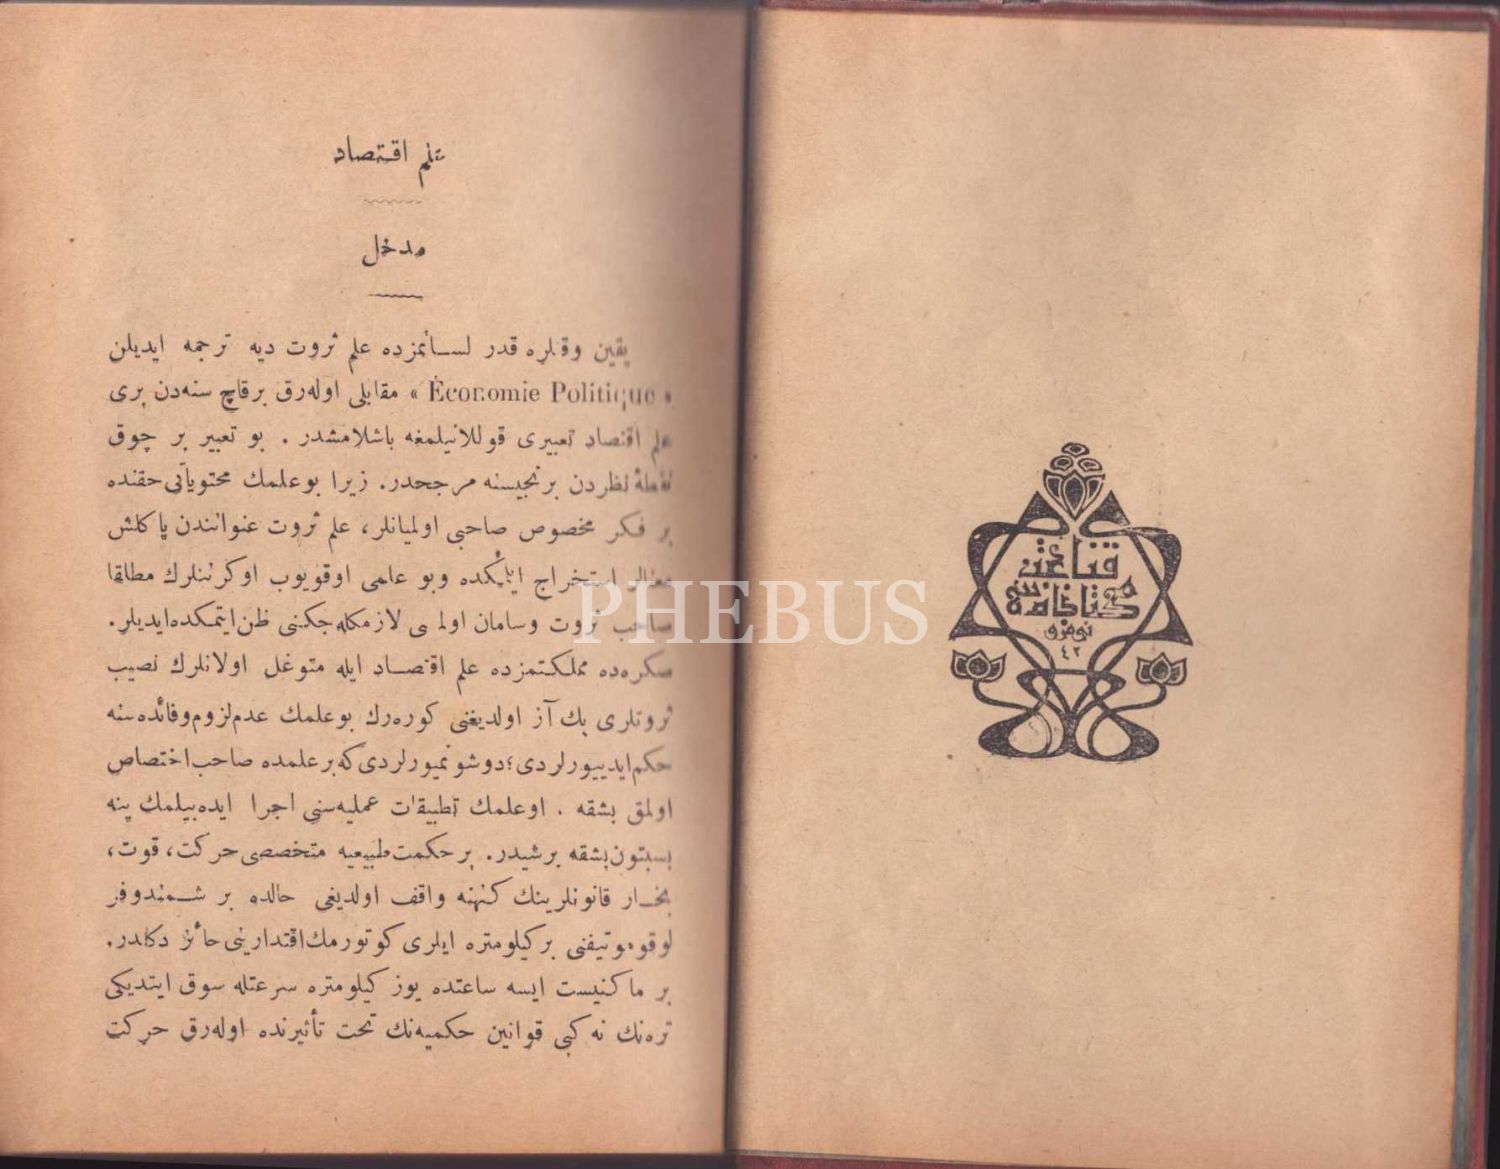 قناعت
كتابخانه سى
نومرو
٤٢
علم اقتصاد
مدخل
يقين وقتلره قدر لسانمزده علم ثروت ديه ترجمه ايديلن
« Économie Politique » مقابلى اوله‌رق برقاچ سنه‌دن برى
علم اقتصاد تعبيرى قوللانيلمغه باشلامشدر . بو تعبير بر چوق
نقطهٔ نظردن برنجيسنه مرجحدر. زيرا بوعلمك محتوياتى حقنده
بر فكر مخصوص صاحبى اولميانلر، علم ثروت عنوانندن ياكلش
معنالر استخراج ايتمكده وبو علمى اوقويوب اوكرننلرك مطلقا
صاحب ثروت وسامان اولمسى لازمكله‌جكنى ظن ايتمكده‌ايديلر.
صكره‌ده مملكتمزده علم اقتصاد ايله متوغل اولانلرك نصيب
ثروتلرى پك آز اولديغنى كوره‌رك بوعلمك عدم‌لزوم‌وفائده‌سنه
حكم‌ايدييورلردى؛دوشونميورلردى‌كه‌برعلمده صاحب‌اختصاص
اولمق بشقه . اوعلمك تطبيقات عمليه‌سنى اجرا ايده‌بيلمك ينه
بسبتون‌بشقه برشيدر. برحكمت‌طبيعيه متخصصى‌حركت، قوت،
بخار قانونلرينك كنهنه واقف اولديغى حالده بر شمندوفر
لوقوموتيفنى بركيلومتره ايلرى كوتورمك‌اقتدارينى‌حائز دكلدر.
بر ماكنيست ايسه ساعتده يوز كيلومتره سرعتله سوق ايتديكى
تره‌نك نه كبى قوانين حكميه‌نك تحت تأثيرنده اوله‌رق حركت
PHEBUS